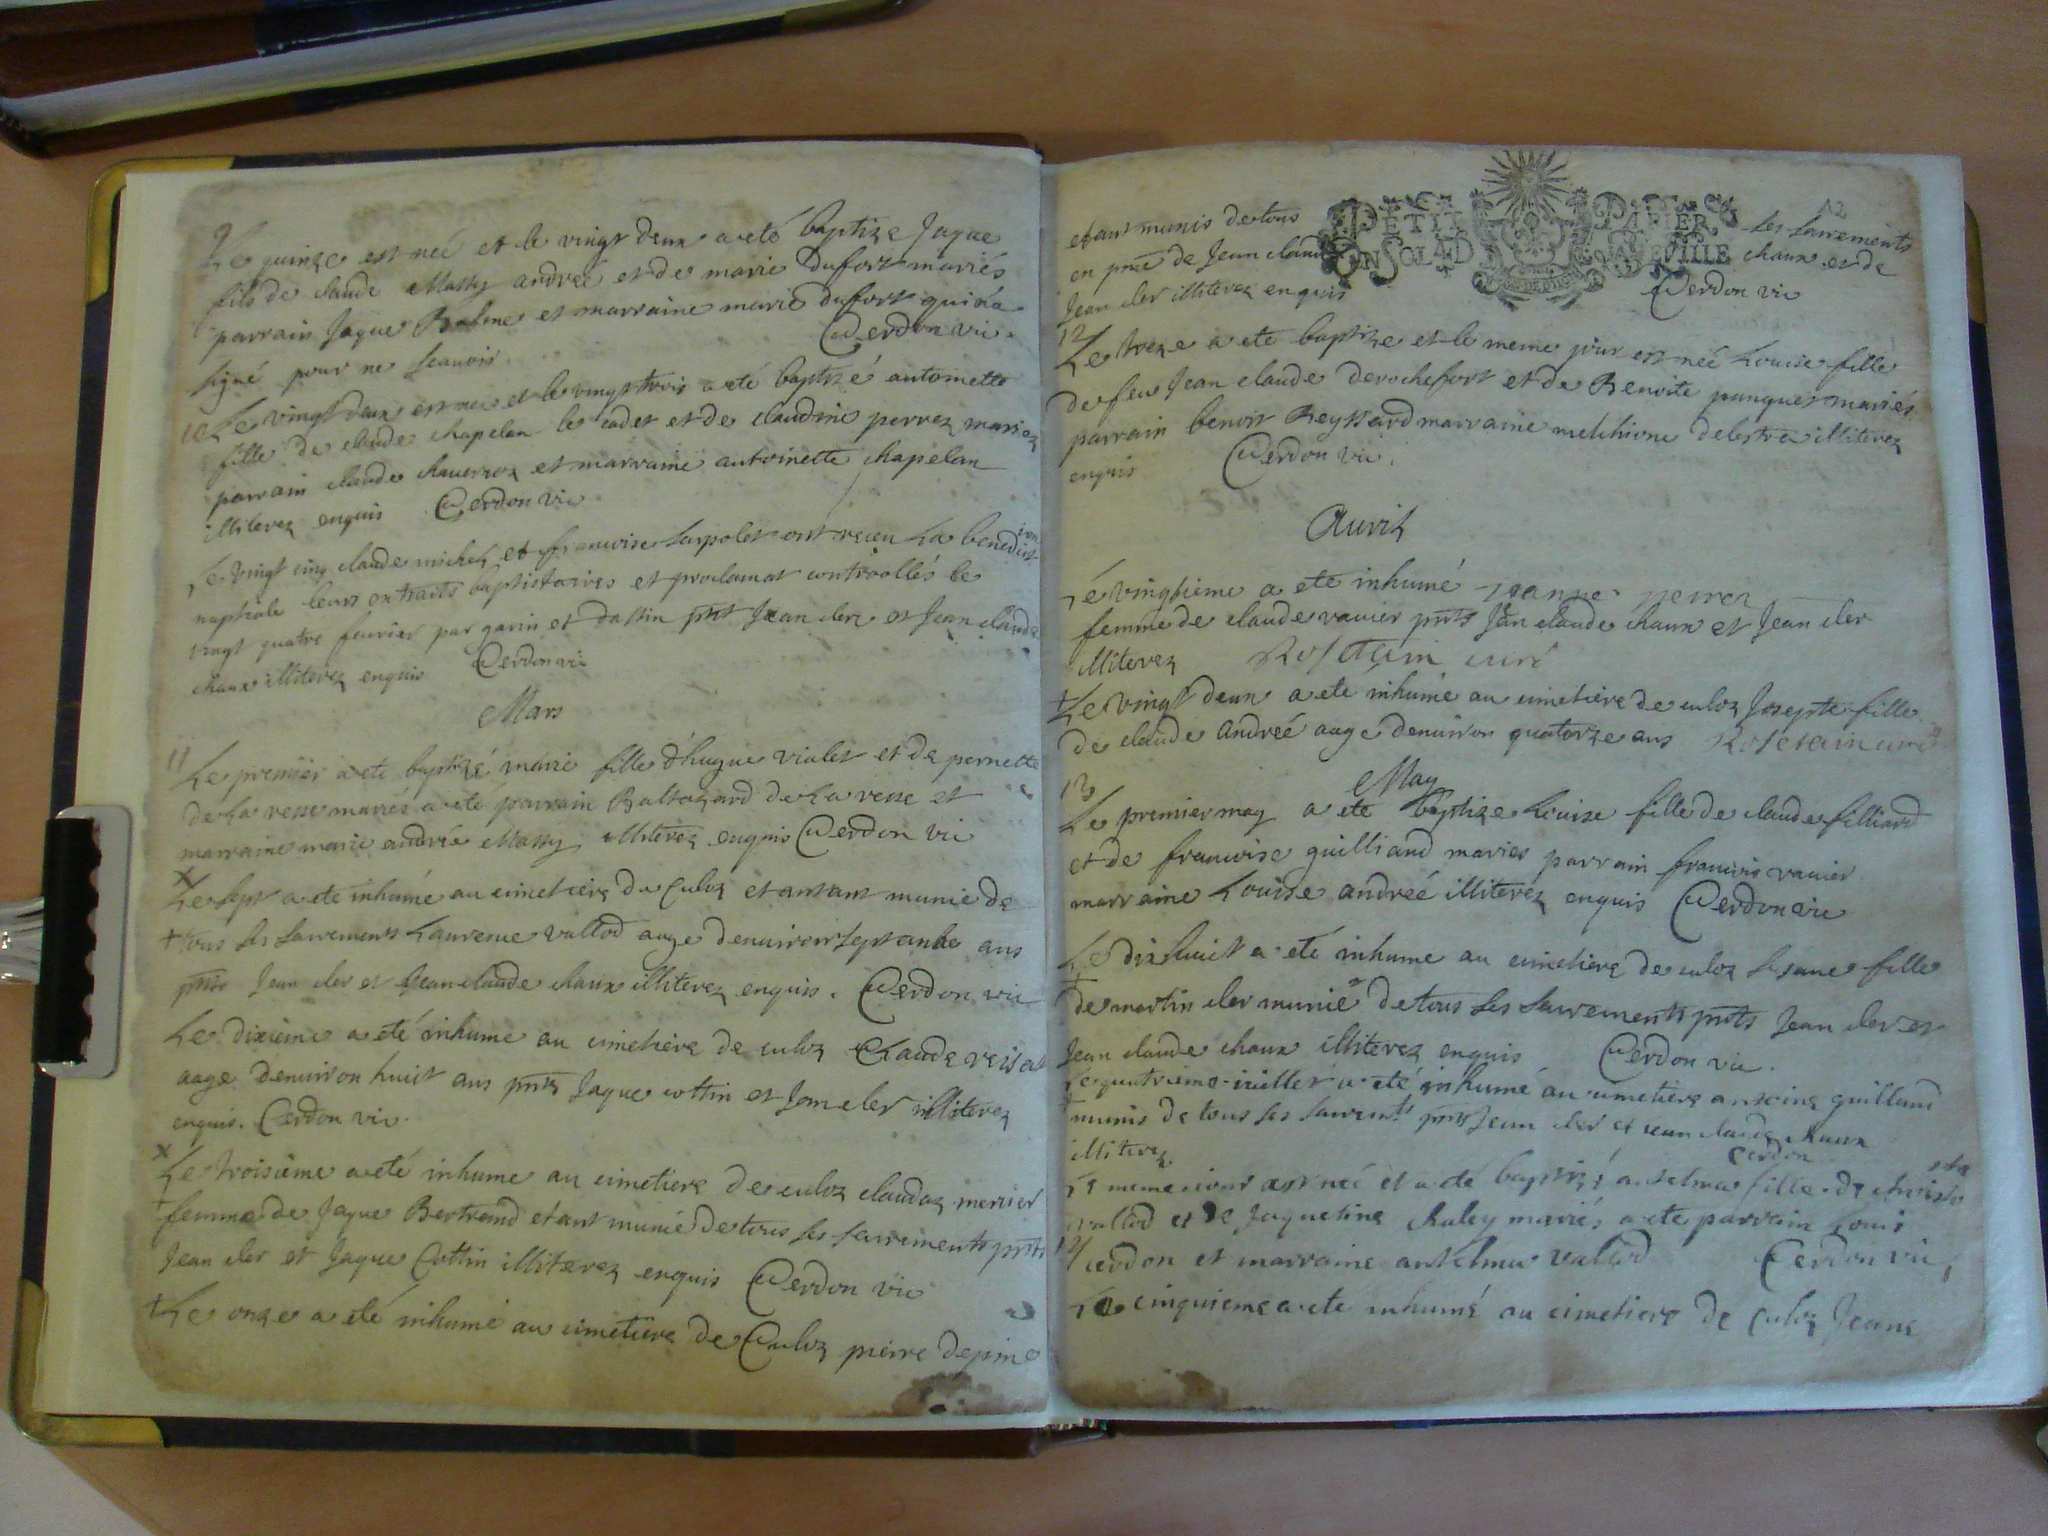 9
Le quinze est neé et le vingt deux a eté baptize Jaque
fils de claude Massy andreé et de marie dufort mariés
parrain Jaque Balme et marraine marie dufort qui n'a
signé pour ne scauoir Cerdon vic.
10 Le vingt deux est neé et le vingt trois a eté baptizé antoinette
fille de claude chapelan le cadet et de claudine perrez mariez
parrain claude chauerroz et marraine antoinette chapelan
illiterez enquis Cerdon vic
Le vingt cinq claude michez et francoise sarpolet ont receu La benediction
nuptiale leurs extraits baptistaires et proclamat controollés le
vingt quatre feurier par garin et dallin pnts Jean cler et Jean claude
chaux illiterez enquis Cerdon vic
Mars
11
Le premier a eté baptizé marie fille d'hugue violet et de pernette
de La vesse mariés a eté parrain Baltazard de La vesse et
marraine marie andrée Massy illiterez enquis Cerdon vic
x
Le sept a ete inhumé au cimetiere de Culoz et antant munie de
+ tous ses sacrements Laurence vallod aage denuiron septante ans
pnts Jean cler et Jean claude chaux illiterez enquis. Cerdon vic
Le dixieme a eté inhume au cimetiere de culoz Claude
aage denuiron huict ans pnts Jaque cottin et Jean cler illiterez
enquis. Cerdon vic.
x
Le troisieme a eté inhume au cimetiere de culoz claudaz mercier
femme de Jaque Bertrand etant munie de tous ses sacrements pnts
Jean cler et Jaque Cottin illiterez enquis Cerdon vic
+ Le onze a eté inhumé au cimetiere de Culoz pierre depine
12
etant munis de tous ses sacrements
PETIT PAPIER
EN SOLAD VALEVILLE
en pnce de Jean claude chaux et de
Jean cler illiterez enquis Cerdon vic
12
Le treze a ete baptize et le meme jour est neé Louise fille
de feu Jean claude de rochefort et de Benoite panquet mariés
parrain benoit Reyssard marraine melchione delestra illiterez
enquis Cerdon vic.
Auril
Le vingtieme a ete inhumé Jeanne perrez
femme de claude vauier pnts Jean claude chaux et Jean cler
illiterez Rosetain curé
+ Le vingt deux a ete inhumé au cimetiere de culoz Josepte fille
de claude andreé aage denuiron quatorze ans Rosetain curé
May
13
Le premier may a ete baptize Louise fille de claude filliard
et de francoise guilliand mariés parrain francois vauier
marraine Louise andreé illiterez enquis Cerdon vic
Le dixhuict a eté inhume au cimetiere de culoz Susane fille
+ de martin cler munie de tous ses sacrements pnts Jean cler et
Jean claude chaux illiterez enquis Cerdon vic.
Le quatrieme iuillet a eté inhumé au cimetiere antoine guilland
+ munis de tous ses sacrents pnts Jean cler et iean claude chaux
illiterez. Cerdon
Le meme iour est neé et a eté baptizé antelma fille de christo
vallod et de Jaquetine chaley mariés a ete parrain Louis
14 cerdon et marraine antelma vallod Cerdon vic
Le cinquieme a eté inhumé au cimetiere de culoz Jeane